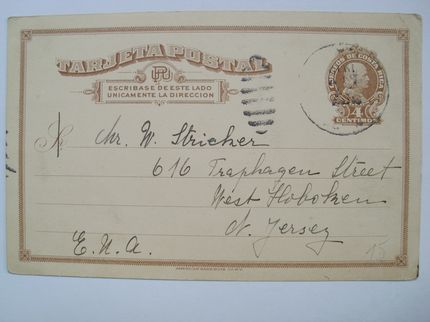 TARJETA POSTAL
ESCRIBASE DE ESTE LADO
UNICAMENTE LA DIRECCION
CORREOS DE COSTA RICA
4
CENTIMOS
Mr. W. Stricker
616 Traphagen Street
West Hoboken
N. Jersey
E.U.A.
15